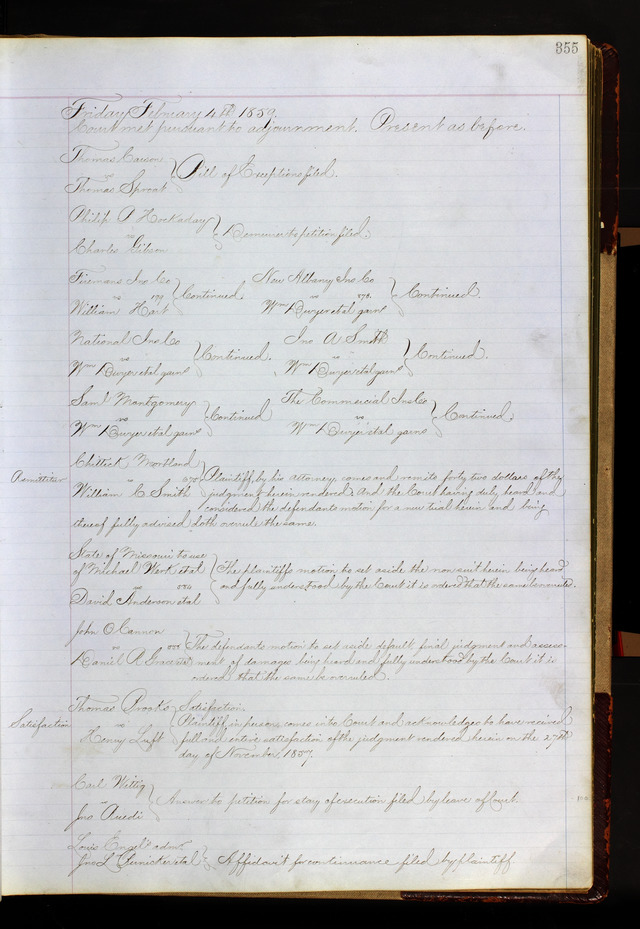 355
Friday February 4th 1859.
Court met pursuant to adjournment. Present as before.
Thomas
vs
Thomas Sproat
Bill of Exceptions filed.
Philip A Hockaday
vs
Charles Gibson
Demurrer to petition filed.
Firemans Ins Co
vs
William Hart
Continued.
New Albany Ins Co
vs
Wm et al gars
Continued.
National Ins Co
vs
Wm et al gars
Continued.
Jno A Smith
vs
Wm et al gars
Continued.
Saml Montgomery
vs
Wm et al gars
Continued
The Commercial Ins Co
vs
Wm et al gars
Continued.
Remittitur
Mortland
vs
William C Smith
Plaintiff, by his attorney, comes and remits forty two dollars of the
judgment herein rendered, And the Court having duly heard and
considered the defendants motion for a new trial herein and being
thereof fully advised doth overrule the same.
State of Missouri to use
of Michael et al
vs
David Anderson et al
The plaintiffs motion to set aside the non suit herein being heard
and fully understood by the Court it is ordered that the same be overruled.
John O Cannon
vs
Daniel R
The defendants motion to set aside default, final judgment and assess-
ment of damages being heard and fully understood by the Court it is
ordered that the same be overruled.
Satisfaction
Thomas Brooks
vs
Henry Luft
Satisfaction.
Plaintiff, in person, comes into Court and acknowledges to have received
full and entire satisfaction of the judgment rendered herein on the 27th
day of November, 1857.
Carl Wettig
vs
Jno Ruedi
Answer to petition for stay of execution filed by leave of Court.
Louis admr
vs
Jno L et al
Affidavit for continuance filed by plaintiff